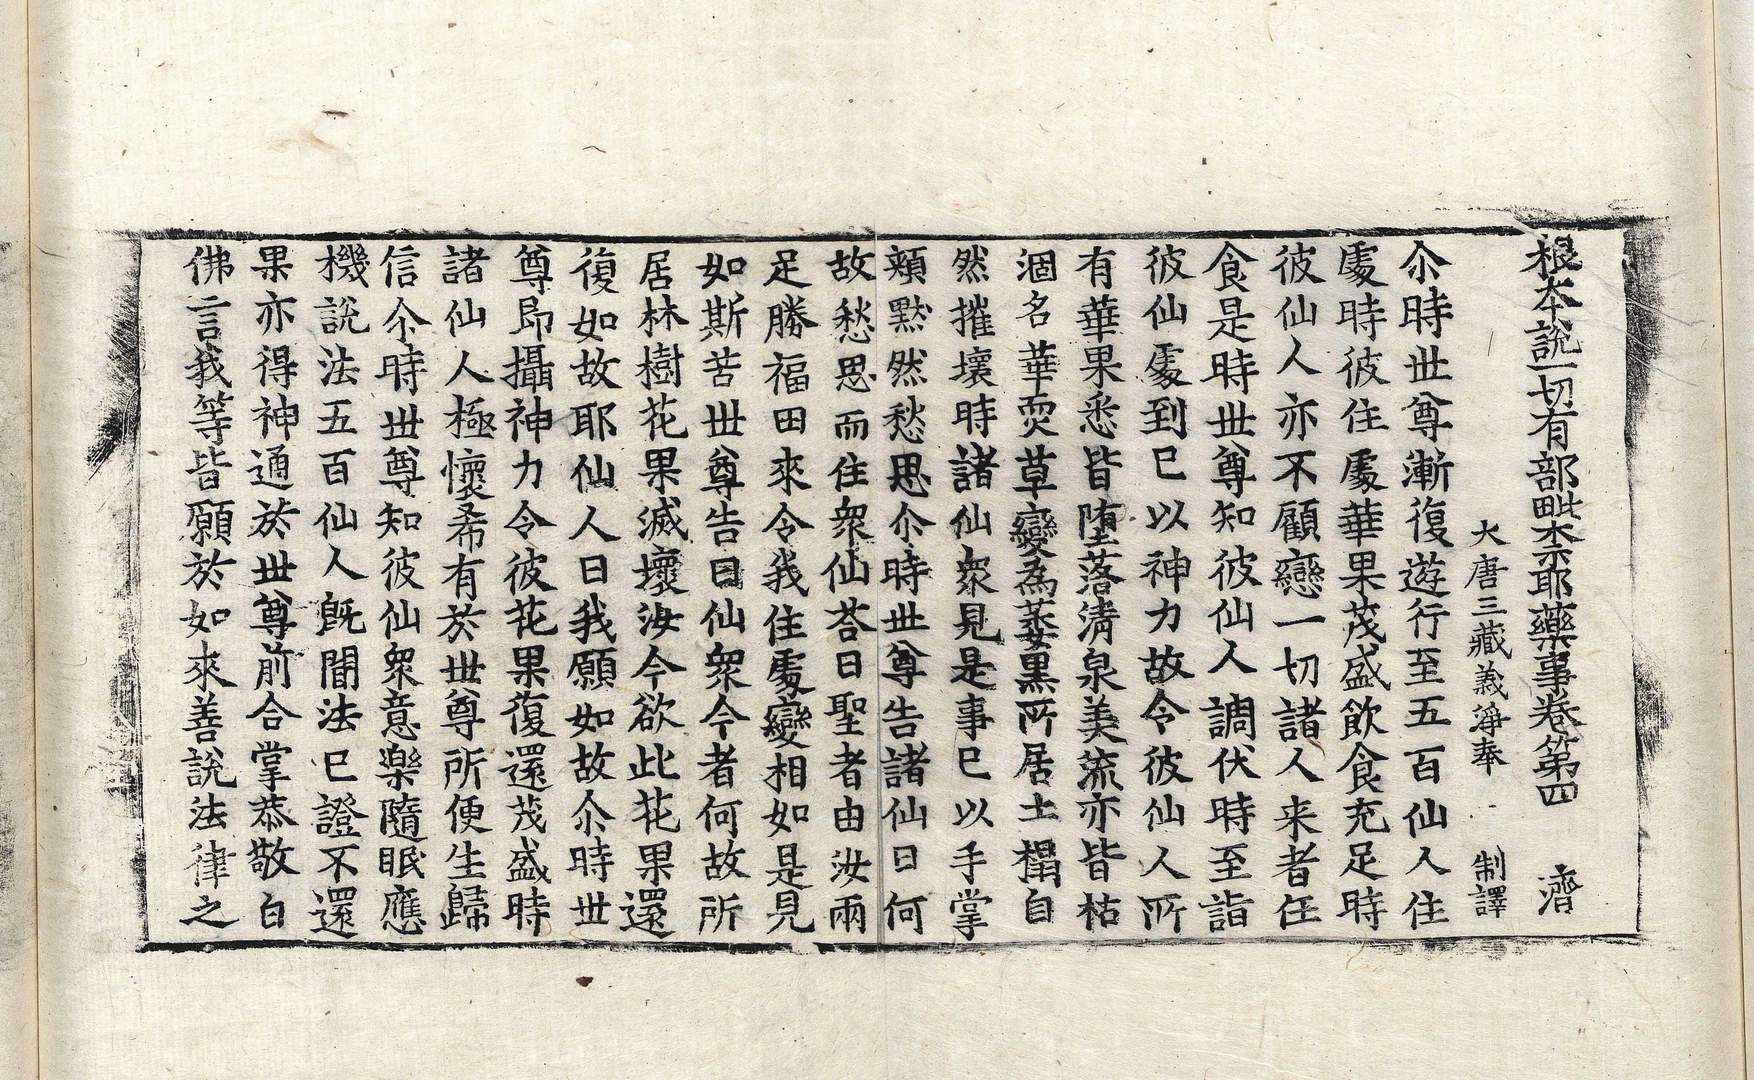 根本說一切有部毗柰耶藥事卷第四 濟
大唐三藏義淨奉 制譯
尒時世尊漸復遊行至五百仙人住
處時彼住處華果茂盛飲食充足時
彼仙人亦不顧戀一切諸人来者任
食是時世尊知彼仙人調伏時至詣
彼仙處到已以神力故令彼仙人所
有華果悉皆墮落清泉美流亦皆枯
涸名華耎草變為萎黑所居土榻自
然摧壞時諸仙衆見是事已以手掌
頰默然愁思尒時世尊告諸仙曰何
故愁思而住衆仙荅曰聖者由汝兩
足勝福田來令我住處變相如是見
如斯苦世尊告曰仙衆今者何故所
居林樹花果滅壞汝今欲此花果還
復如故耶仙人曰我願如故尒時世
尊即攝神力令彼花果復還茂盛時
諸仙人極懷希有於世尊所便生歸
信尒時世尊知彼仙衆意樂隨眠應
機說法五百仙人旣聞法已證不還
果亦得神通於世尊前合掌恭敬白
佛言我等皆願於如來善說法律之